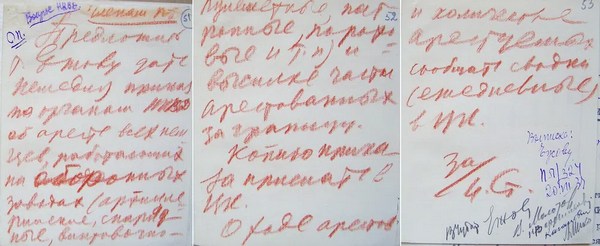 Членам ПБ
51
ОП.
Предложить
т. Ежову дать
немедля приказ
по органам НКВД
об аресте всех нем
цев, работающих
на оборонных
заводах (артилле
рийские, снаряд
ные, винтовочно-
52
пулеметные, пат
ронные, порохо
вые и т.п.) и
высылке части
арестованных
за границу.
Копию прика
за прислать в
ЦК.
О ходе арестов
53
и количестве
арестуемых
сообщать сводки
(ежедневные)
в ЦК.
За
И. Ст.
Выписка:
Ежову
20.VII.37
В. Молотов